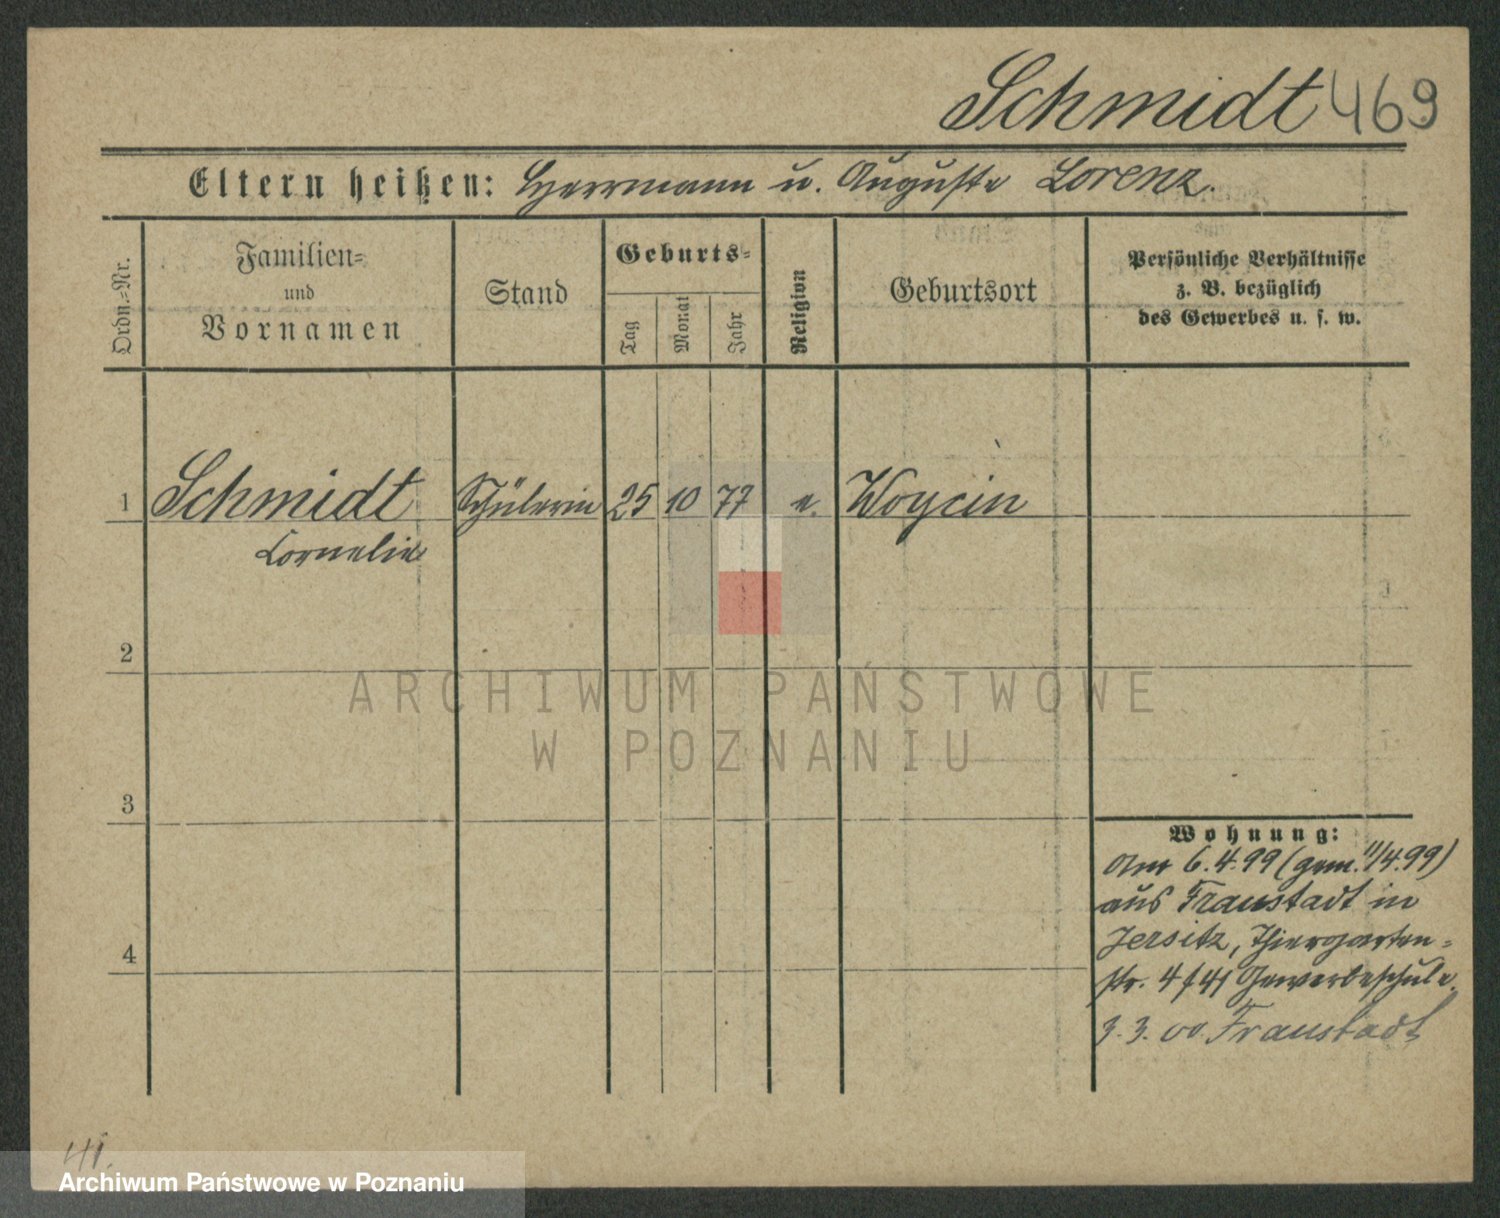 Schmidt 469
Eltern heißen: Herrmann u. Auguste Lorenz.
Ordn.-Nr.
Familien-
und
Vornamen
Stand
Geburts-
Tag
Monat
Jahr
Religion
Geburtsort
Persönliche Verhältnisse
z. B. bezüglich
des Gewerbes u. s. w.
1 Schmidt Schülerin 25 10 77 e. Woycin
Cornelie
2
ARCHIWUM PAŃSTWOWE
W POZNANIU
3
Wohnung:
Am 6.4.99 (gem. 11/4.99)
aus Fraustadt in
Jersitz, Thiergarten-
str. 4 f 41 Gewerbeschule.
4
3.3.00 Fraustadt
41.
Archiwum Państwowe w Poznaniu